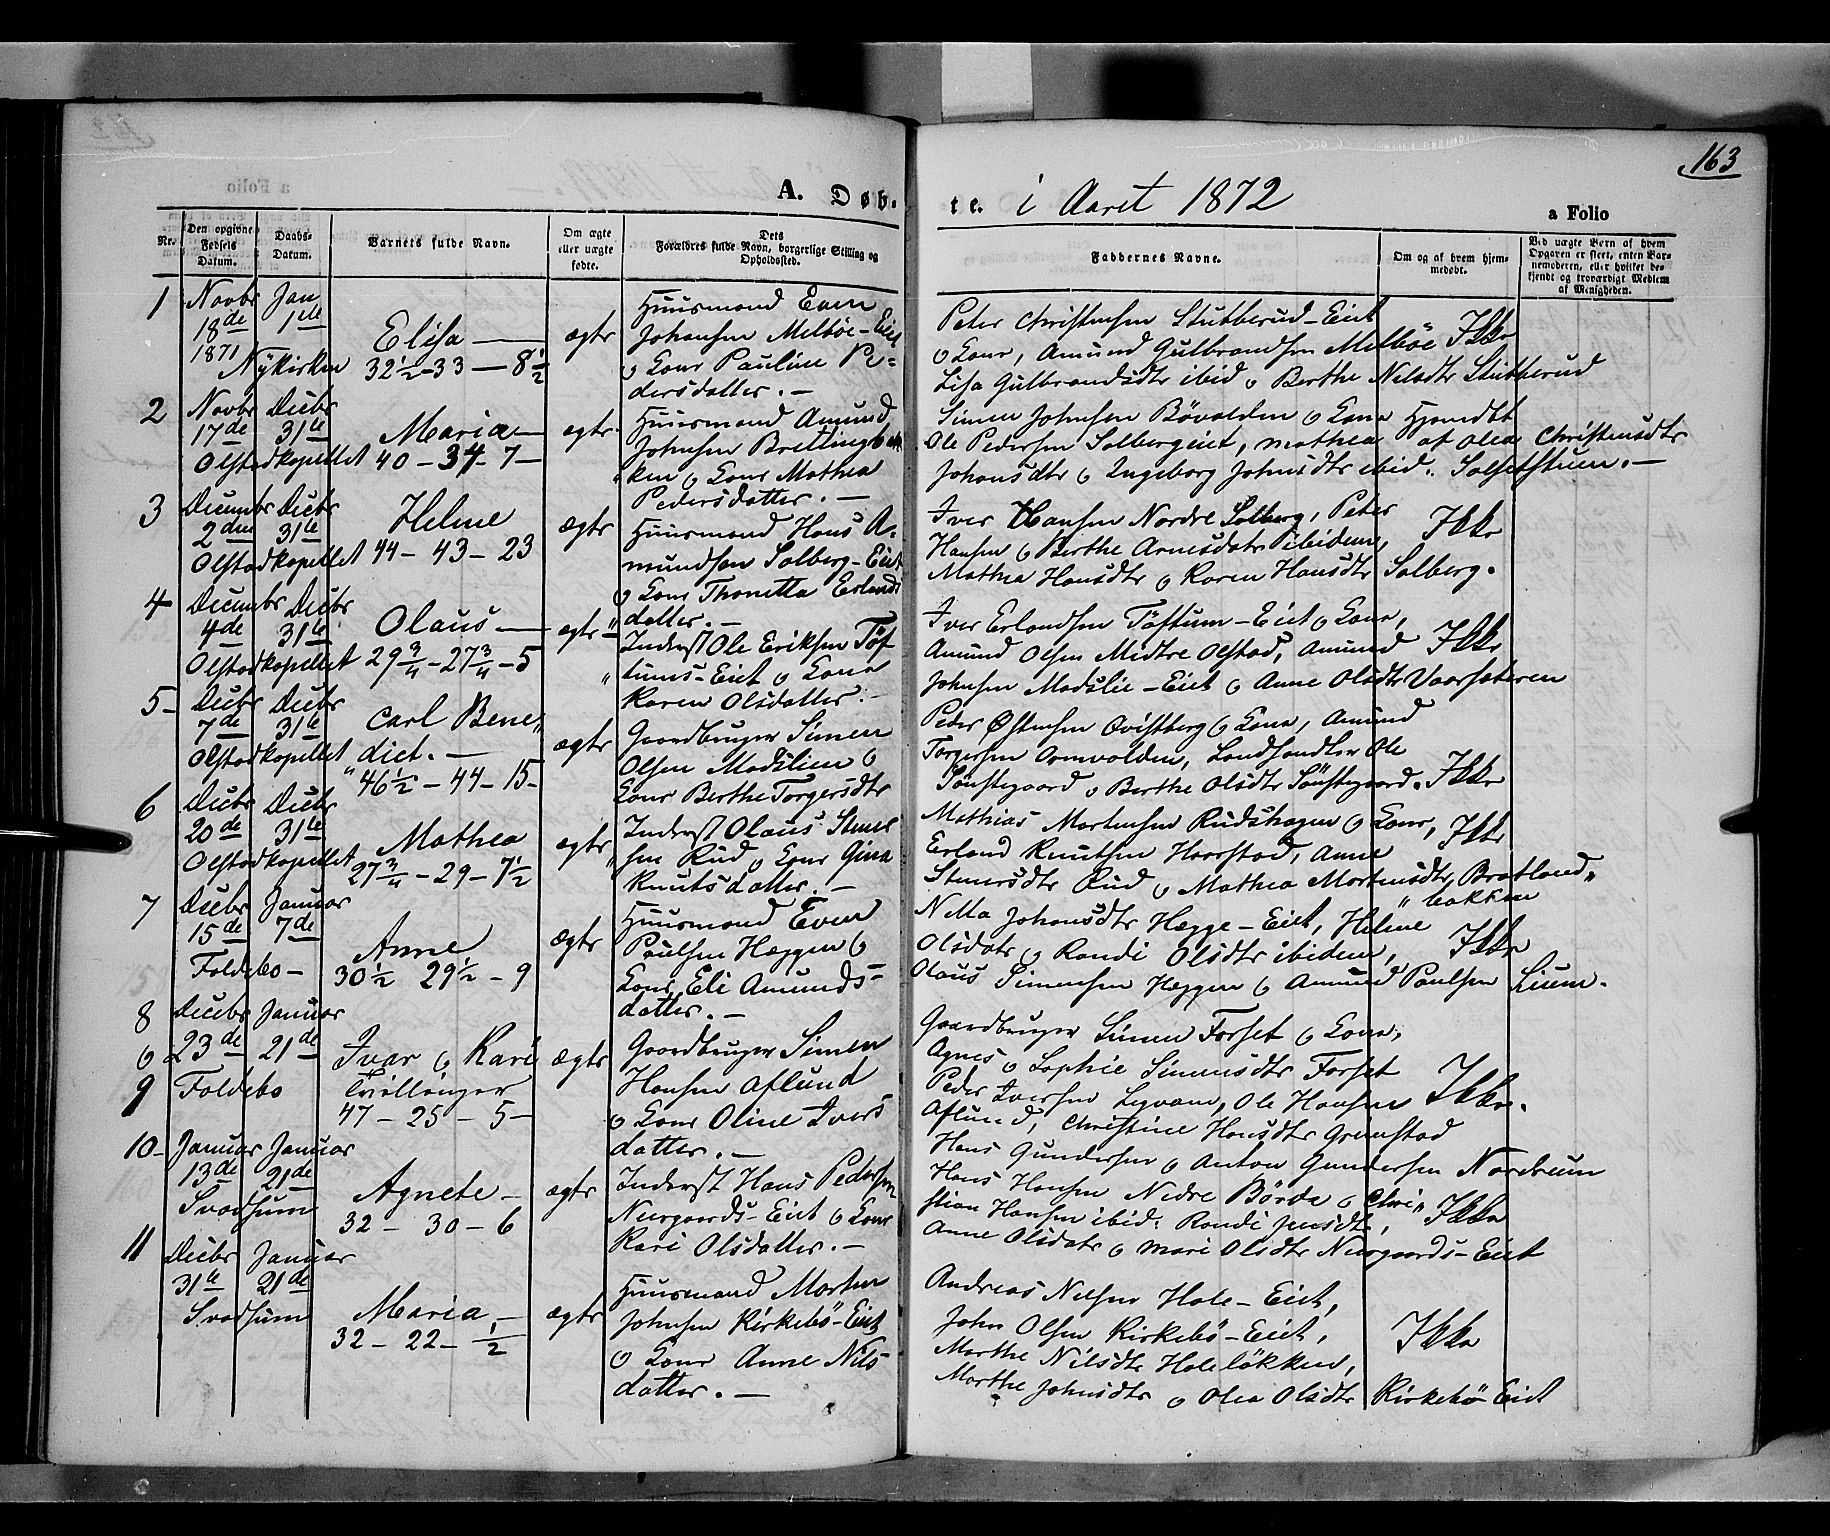 163
A. Døb-
te. i Aaret 1872
a Folio
Nr.
Den opgivne Fødsels Datum.
Daabs-Datum.
Barnets fulde Navn.
Om ægte eller uægte fødte.
Dets Forældres fulde Navn, borgerlige Stilling og Opholdssted.
Faddernes Navne.
Om og af hvem hjemmedøbt.
Ved uægte Børn af hvem Opgaven er skeet, enten Barnemoderen, eller hvilket bekjendt og troværdigt Medlem af Menigheden.
1
Novbr
18de
1871
Jan
1ste
Nykirken
Elisa
32½-33-8½
ægte
Huusmand Even
Johansen Melbøe-Eiet
o Kone Pauline Pe-
dersdatter.
Peter Christensen Stubberud-Eiet
o Kone, Amund Gulbrandsen Melbøe
Lisa Gulbrandsdtr ibid o Berthe Nilsdtr Stubberud
Ikke
2
Novbr
17de
Decbr
31te
Olstadkapellet
Maria
40-34-7
ægte
Huusmand Amund
Johnsen Brettingbak
ken o Kone Mathea
Pedersdatter.
Simen Johnsen Bövolden o Kone
Ole Pedersen Solbergeiet, Mathea
Johansdtr o Ingeborg Johnsdtr ibid.
Hjemdbt
af Olea Christensdtr
Solsetstuen.
3
Decembr
2den
Decbr
31te
Olstadkapellet
Helene
44-43-23
ægte
Huusmand Hans A-
mundsen Solberg-Eiet
o Kone Thonetta Erlands
datter.
Iver Hansen Nordre Solberg, Peter
Hansen o Berthe Arnesdatr ibidem,
Mathea Hansdtr o Karen Hansdtr Solberg.
Ikke
4
Decembr
4de
Decbr
31te
Olstadkapellet
Olaus
29¾-27¾-5
ægte
Inderst Ole Eriksen Töf
tums-Eiet o Kone
Karen Olsdatter.
Iver Erlandsen Töftum-Eiet o Kone,
Amund Olsen Midtre Olstad, Amund
Johnsen Madslie-Eiet o Anne Olsdtr Vaarsæteren
Ikke
5
Decbr
7de
Decbr
31te
Olstadkapellet
Carl Bene
dict.
46½-44-15
ægte
Gaardbruger Simen
Olsen Madslien o
Kone Berthe Torgersdtr
Peder Østensen Qvistberg o Kone, Amund
Torgersen Aamvolden, Landhandler Ole
Sönstegaard o Berthe Olsdtr Sönstegaard.
Ikke
6
Decbr
20de
Decbr
31te
Olstadkapellet
Mathea
27¾-29-7½
ægte
Inderst Olaus Stener
sen Rud o Kone Gina
Knutsdatter.
Mathias Mortensen Rudshagen o Kone,
Erland Knutsen Haarstad, Anne
Stenersdtr Rud o Mathea Mortensdtr Bratland
bakken
Ikke
7
Decbr
15de
Januar
7de
Foldebo
Anne
30½ 29½-9
ægte
Huusmand Even
Paulsen Hæggen o
Kone Eli Amunds-
datter.
Nilla Johansdtr Hegge-Eiet, Helene
Olsdatr o Randi Olsdtr ibidem,
Olaus Simensen Hæggen o Amund Paulsen Lium.
Ikke
8
o
9
Decbr
23de
Januar
21de
Foldebo
Ivar o Kari
Tvillinger
47-25-5
ægte
Gaardbruger Simen
Hansen Aflund
o Kone Oline Ivers
datter.
Gaardbruger Simen Forset o Kone,
Agnes o Sophie Simensdtr Forset
Peder Iversen Lyvam, Ole Hansen
Aflund, Christine Hansdtr Grimstad
Hans Gundersen o Anton Gundersen Nordrum
Ikke.
10
Januar
13de
Januar
21de
Svadsum
Agnete
32-30-6
ægte
Inderst Hans Pedersen
Nusgaards-Eiet o Kone
Kari Olsdatter.
Hans Hansen Nedre Börde o Chri
stian Hansen ibid: Randi Jensdtr,
Anne Olsdatr o Mari Olsdtr Nusgaards-Eiet
Ikke
11
Decbr
31te
Januar
21de
Svadsum
Maria
32-22-½
ægte
Huusmand Morten
Johnsen Kirkebö-Eiet
o Kone Anne Nils
datter.
Andreas Nilsen Hole-Eiet,
John Olsen Kirkebö-Eiet,
Marthe Nilsdtr Holelökken,
Marthe Johnsdtr o Olea Olsdtr Kirkebö Eiet
Ikke